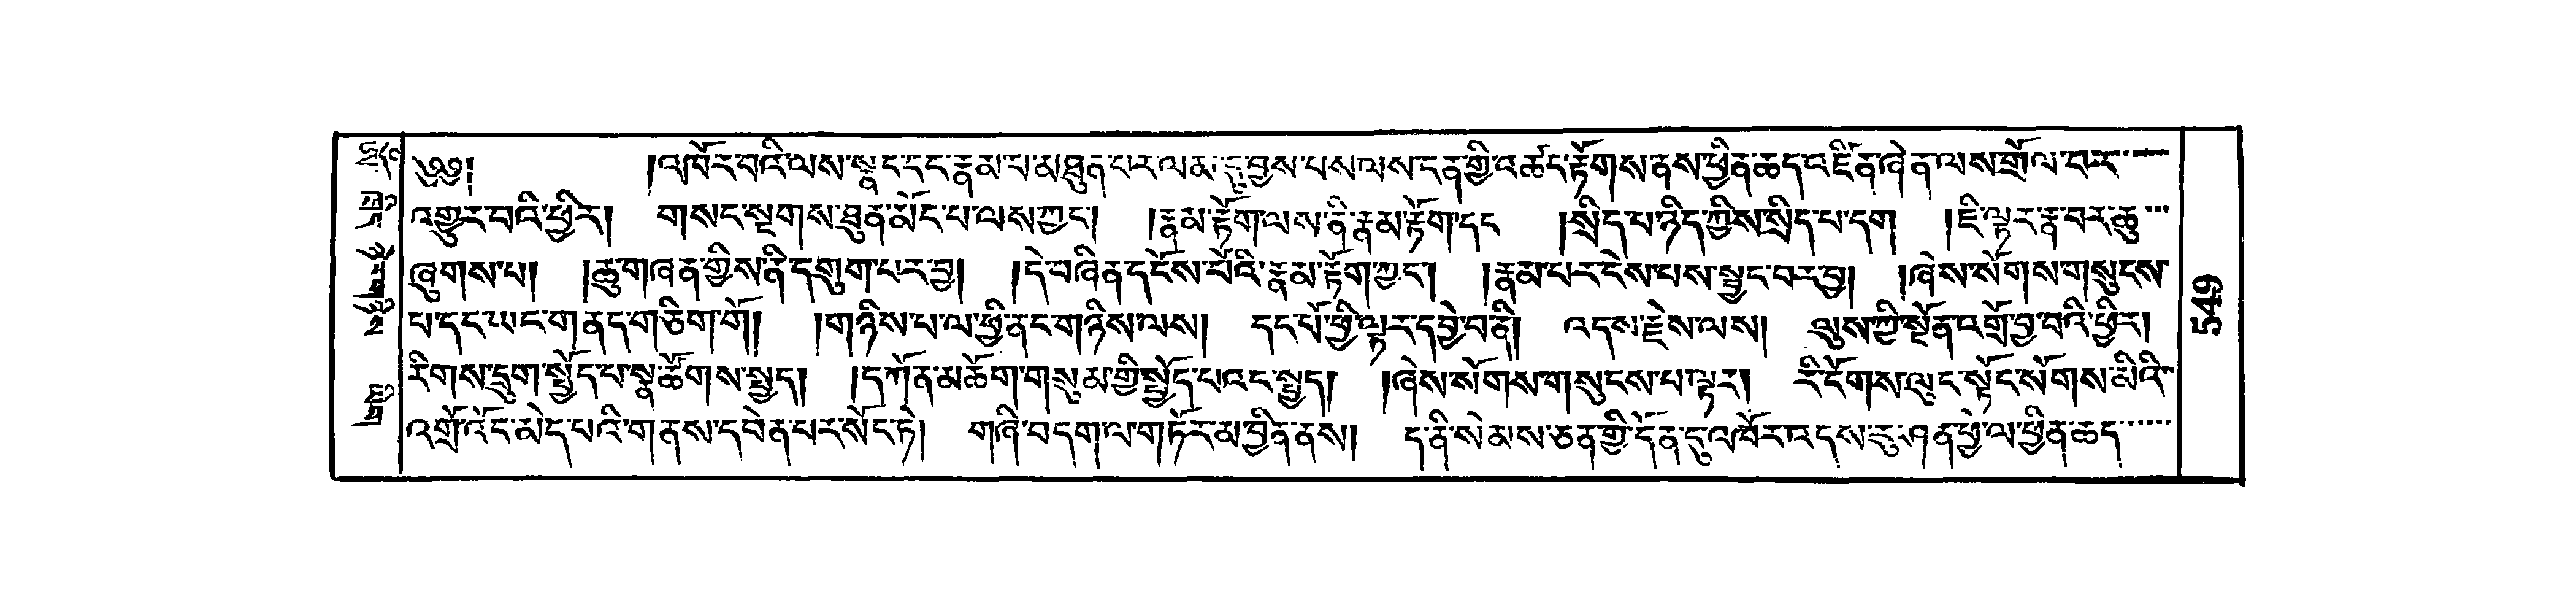 ༄༅།  །འཁོར་བའི་ལས་སྣང་དང་རྣམ་པ་མཐུན་པར་ལམ་དུ་བྱས་པས་ལས་དན་གྱི་འཚང་རྟོགས་ནས་ཕྱིན་ཆད་འཛིན་ཞེན་ལས་གྲོལ་བར་
འགྱུར་བའི་ཕྱིར། གསང་སྔགས་ཐུན་མོང་པ་ལས་ཀྱང་། །རྣམ་རྟོག་ལས་ནི་རྣམ་རྟོག་དང །སྲིད་པ་ཉིད་ཀྱིས་སྲིད་པ་དག །ཇི་ལྟར་རྣ་བར་ཆུ་
ཞུགས་པ། །ཆུ་གཞན་གྱིས་ནི་དགུག་པར་བྱ། །དེ་བཞིན་དངོས་པོའི་རྣམ་རྟོག་ཀྱང་། །རྣམ་པར་ངེས་པས་སྦྱང་བར་བྱ། །ཞེས་སོགས་གསུངས་
པ་དང་ཡང་གནད་གཅིག་གོ། །གཉིས་པ་ལ་ཕྱི་ནང་གཉིས་ལས། དང་པོ་ཕྱི་ལྟར་དབྱེ་བ་ནི། འདས་རྗེས་ལས། ལུས་ཀྱི་སྔོན་འགྲོ་བྱ་བའི་ཕྱིར།
རིགས་དྲུག་སྤྱོད་པ་སྣ་ཚོགས་སྤྱད། །དཀོན་མཆོག་གསུམ་གྱི་སྤྱོད་པའང་སྤྱད། །ཞེས་སོགས་གསུངས་པ་ལྟར། རི་དོགས་ལུང་སྟོང་སོགས་མིའི་
འགྲོ་འོང་མེད་པའི་གནས་དབེན་པར་སོང་ཏེ། གཞི་བདག་ལ་གཏོར་མ་བྱིན་ནས། ད་ནི་སེམས་ཅན་གྱི་དོན་དུ་འཁོར་འདས་རུ་ཤན་ཕྱེ་ལ་ཕྱིན་ཆད་